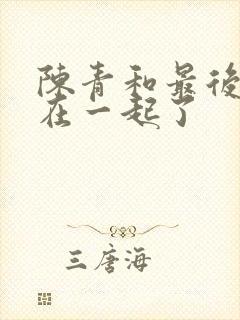 陳青和最後
在一起了
三唐海